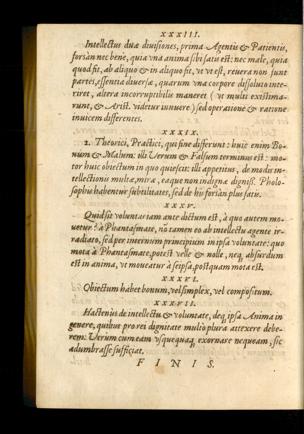 XXXIII.
Intellectus duæ diuisiones, prima Agentis & Patientis,
forsan nec bene, quia vna anima sibi satis est: nec male, quia
quod fit, ab aliquo & in aliquo fit, vt vt est, reuera non sunt
partes, essentia diuersæ, quarum vna corpore dissoluto inte-
riret, altera incorruptibilis maneret (vt multi existima-
runt, & Arist. videtur innuere) sed operatione & ratione
inuicem differentes.
XXXIX.
2. Theorici, Practici, qui fine differunt: huic enim Bo-
num & Malum: illi Verum & Falsum terminus est: mo-
tor huic obiectum in quo quiescit: illi appetitus, de modis in-
tellectionis multa, mira, eaque non indigna digniss. Pholo-
sophis habentur subtilitates, sed de his forsan plus satis.
XXXV.
Quid sit voluntas iam ante dictum est, à quo autem mo-
uetur? à Phantasmate, nō tamen eo ab intellectu agente ir-
radiato, sed per internum principium in ipsa voluntate: quo
mota à Phantasmate, potest velle & nolle, neq; absurdum
est in anima, vt moueatur à seipsa, postquam mota est.
XXXVI.
Obiectum habet bonum, vel simplex, vel compositum.
XXXVII.
Hactenus de intellectu & voluntate, deq; ipsa Anima in
genere, quibus pro rei dignitate multo plura attexere debe-
rem: Verum cum eam vsquequaq; exornare nequeam, sic
adumbrasse sufficiat.
FINIS.